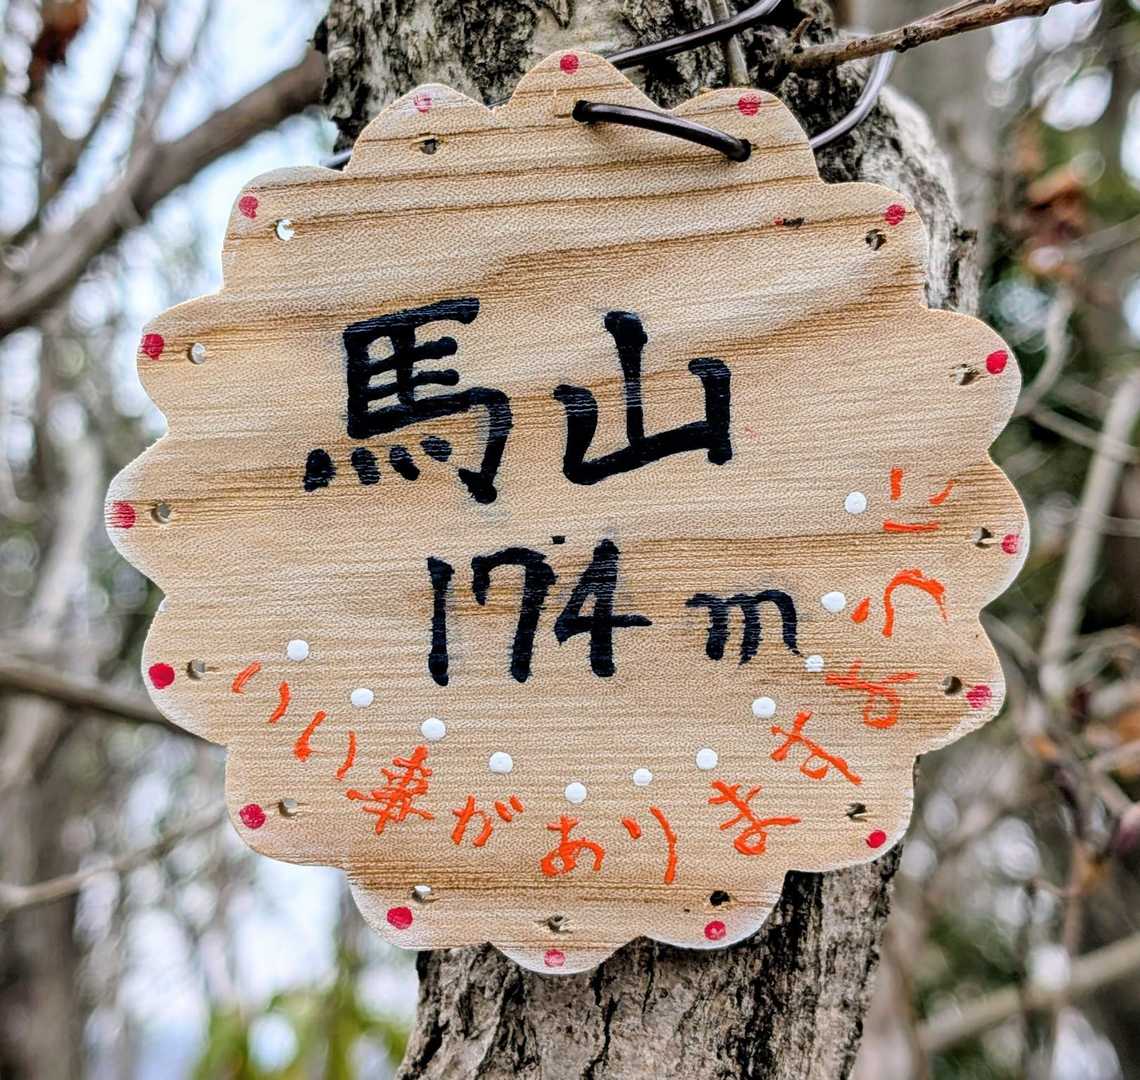 馬山
174m
いい事がありますように